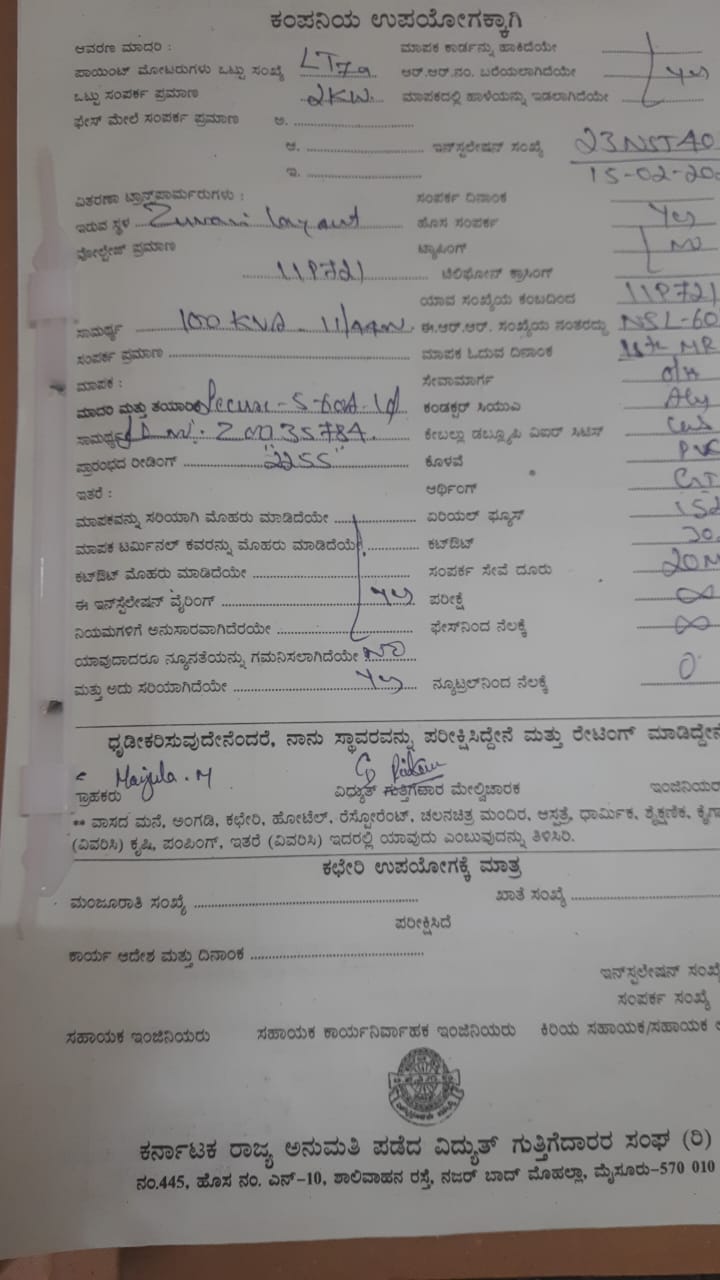 ಕಂಪನಿಯ ಉಪಯೋಗಕ್ಕಾಗಿ
ಆವರಣ ಮಾದರಿ : ಮಾಪಕ ಕಾರ್ಡನ್ನು ಹಾಕಿದೆಯೇ
ಪಾಯಿಂಟ್ ಮೋಟರುಗಳು ಒಟ್ಟು ಸಂಖ್ಯೆ LT7a ಆರ್.ಆರ್.ನಂ. ಬರೆಯಲಾಗಿದೆಯೇ Yes
ಒಟ್ಟು ಸಂಪರ್ಕ ಪ್ರಮಾಣ 2KW. ಮಾಪಕದಲ್ಲಿ ಹಾಳೆಯನ್ನು ಇಡಲಾಗಿದೆಯೇ
ಫೇಸ್ ಮೇಲೆ ಸಂಪರ್ಕ ಪ್ರಮಾಣ ಅ.
ಆ. ಇನ್‌ಸ್ಟಲೇಷನ್ ಸಂಖ್ಯೆ 23NST40
ಇ. 15-02-20
ವಿತರಣಾ ಟ್ರಾನ್ಸ್‌ಫಾರ್ಮರುಗಳು : ಸಂಪರ್ಕ ದಿನಾಂಕ
ಇರುವ ಸ್ಥಳ Zuwari layout ಹೊಸ ಸಂಪರ್ಕ Yes
ವೋಲ್ಟೇಜ್ ಪ್ರಮಾಣ ಟ್ಯಾಪಿಂಗ್ NO
11P721 ಟೆಲಿಫೋನ್ ಕ್ರಾಸಿಂಗ್
ಯಾವ ಸಂಖ್ಯೆಯ ಕಂಬದಿಂದ 11P721
ಸಾಮರ್ಥ್ಯ 100 KVA ಈ.ಆರ್.ಆರ್. ಸಂಖ್ಯೆಯ ನಂತರದ್ದು NSL-60
ಸಂಪರ್ಕ ಪ್ರಮಾಣ ಮಾಪಕ ಓದುವ ದಿನಾಂಕ MR
ಮಾಪಕ : ಸೇವಾಮಾರ್ಗ O/H
ಮಾದರಿ ಮತ್ತು ತಯಾರಿ Secure ಕಂಡಕ್ಟರ್ ಸಿಯುಎ Aly
ಸಾಮರ್ಥ್ಯ ಕೇಬಲ್ಲು ಡಬ್ಲ್ಯೂಪಿ ವಿಐಆರ್ ಸಿಟಿಸ್
ಪ್ರಾರಂಭದ ರೀಡಿಂಗ್ "2255" ಕೊಳವೆ PVC
ಇತರೆ : ಆರ್ಥಿಂಗ್
ಮಾಪಕವನ್ನು ಸರಿಯಾಗಿ ಮೊಹರು ಮಾಡಿದೆಯೇ ಏರಿಯಲ್ ಫ್ಯೂಸ್ 15
ಮಾಪಕ ಟರ್ಮಿನಲ್ ಕವರನ್ನು ಮೊಹರು ಮಾಡಿದೆಯೇ ಕಟ್‌ಔಟ್
ಕಟ್‌ಔಟ್ ಮೊಹರು ಮಾಡಿದೆಯೇ ಸಂಪರ್ಕ ಸೇವೆ ದೂರು 20M
ಈ ಇನ್‌ಸ್ಟೆಲೇಷನ್ ವೈರಿಂಗ್ Yes ಪರೀಕ್ಷೆ ∞
ನಿಯಮಗಳಿಗೆ ಅನುಸಾರವಾಗಿದೆರಯೇ ಫೇಸ್‌ನಿಂದ ನೆಲಕ್ಕೆ ∞
ಯಾವುದಾದರೂ ನ್ಯೂನತೆಯನ್ನು ಗಮನಿಸಲಾಗಿದೆಯೇ NO
ಮತ್ತು ಅದು ಸರಿಯಾಗಿದೆಯೇ Yes ನ್ಯೂಟ್ರಲ್‌ನಿಂದ ನೆಲಕ್ಕೆ 0
ಧೃಡೀಕರಿಸುವುದೇನೆಂದರೆ, ನಾನು ಸ್ಥಾವರವನ್ನು ಪರೀಕ್ಷಿಸಿದ್ದೇನೆ ಮತ್ತು ರೇಟಿಂಗ್ ಮಾಡಿದ್ದೇನೆ
ಗ್ರಾಹಕರು ವಿದ್ಯುತ್ ಗುತ್ತಿಗೆದಾರ ಮೇಲ್ವಿಚಾರಕ ಇಂಜಿನಿಯರ
** ವಾಸದ ಮನೆ, ಅಂಗಡಿ, ಕಛೇರಿ, ಹೋಟೆಲ್, ರೆಸ್ಟೋರೆಂಟ್, ಚಲನಚಿತ್ರ ಮಂದಿರ, ಆಸ್ಪತ್ರೆ, ಧಾರ್ಮಿಕ, ಶೈಕ್ಷಣಿಕ, ಕೈಗಾ
(ವಿವರಿಸಿ) ಕೃಷಿ, ಪಂಪಿಂಗ್, ಇತರೆ (ವಿವರಿಸಿ) ಇದರಲ್ಲಿ ಯಾವುದು ಎಂಬುವುದನ್ನು ತಿಳಿಸಿರಿ.
ಕಛೇರಿ ಉಪಯೋಗಕ್ಕೆ ಮಾತ್ರ
ಮಂಜೂರಾತಿ ಸಂಖ್ಯೆ ಖಾತೆ ಸಂಖ್ಯೆ
ಪರೀಕ್ಷಿಸಿದೆ
ಕಾರ್ಯ ಆದೇಶ ಮತ್ತು ದಿನಾಂಕ
ಇನ್‌ಸ್ಟಲೇಷನ್ ಸಂಖ್ಯೆ
ಸಂಪರ್ಕ ಸಂಖ್ಯೆ
ಸಹಾಯಕ ಇಂಜಿನಿಯರು ಸಹಾಯಕ ಕಾರ್ಯನಿರ್ವಾಹಕ ಇಂಜಿನಿಯರು ಕಿರಿಯ ಸಹಾಯಕ/ಸಹಾಯಕ
ಕರ್ನಾಟಕ ರಾಜ್ಯ ಅನುಮತಿ ಪಡೆದ ವಿದ್ಯುತ್ ಗುತ್ತಿಗೆದಾರರ ಸಂಘ (ರಿ)
ನಂ.445, ಹೊಸ ನಂ. ಎನ್-10, ಶಾಲಿವಾಹನ ರಸ್ತೆ, ನಜರ್ ಬಾದ್ ಮೊಹಲ್ಲಾ, ಮೈಸೂರು-570 010